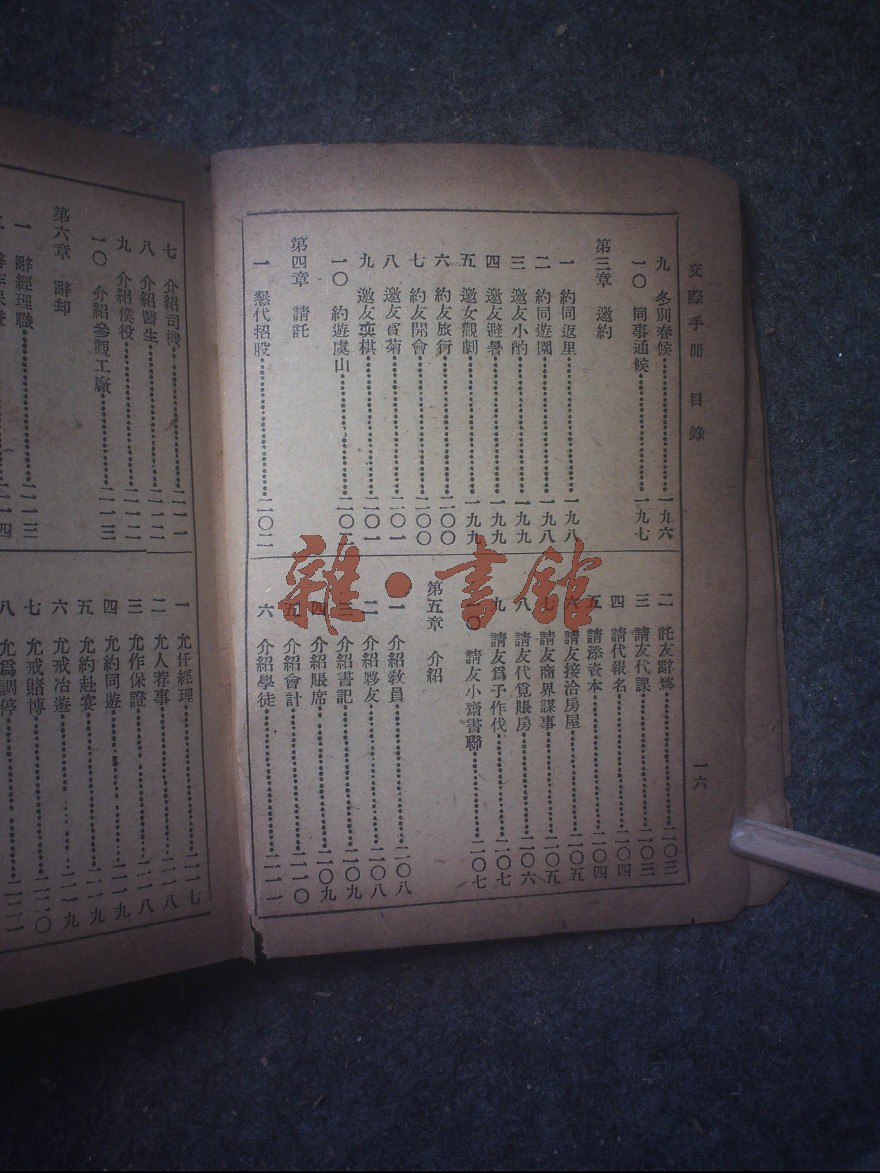 交際手冊 目錄
一六
九 冬別春候 一九六
一〇 同事通候 一九七
第三章 邀約
一 約同返里 一九八
二 約同遊園 一九八
三 邀友小酌 一九九
四 邀友避暑 一九九
五 邀女觀劇 一九九
六 約友旅行 二〇〇
七 約友開會 二〇〇
八 邀友賞菊 二〇一
九 邀友奕棋 二〇一
一〇 約遊虞山 二〇二
第四章 請託
一 懇代招股 二〇二
二 託友辭 二〇三
三 請友代課 二〇三
四 請代報名 二〇四
五 請添資本 二〇四
六 請友接洽房屋 二〇五
七 請友商界謀事 二〇五
八 請友代覓賬房 二〇六
九 請友為子作伐 二〇七
一〇 請友小齋書聯 二〇七
第五章 介紹
一 介紹教員 二〇八
二 介紹夥友 二〇八
三 介紹書記 二〇九
四 介紹賬席 二〇九
五 介紹會計 二一〇
六 介紹學徒 二一一
雜·書館
七 介紹司機 二一一
八 介紹醫生 二一二
九 介紹僕役 二一二
一〇 介紹參觀工廠 二一三
第六章 辭却
一 辭經理職 二一三
二一四
一 允任經理 二一七
二 允人荐事 二一八
三 允作保證 二一八
四 允約同遊 二一九
五 允約赴宴 二一九
六 允戒冶遊 二一九
七 允戒賭博 二二〇
八 允爲調停